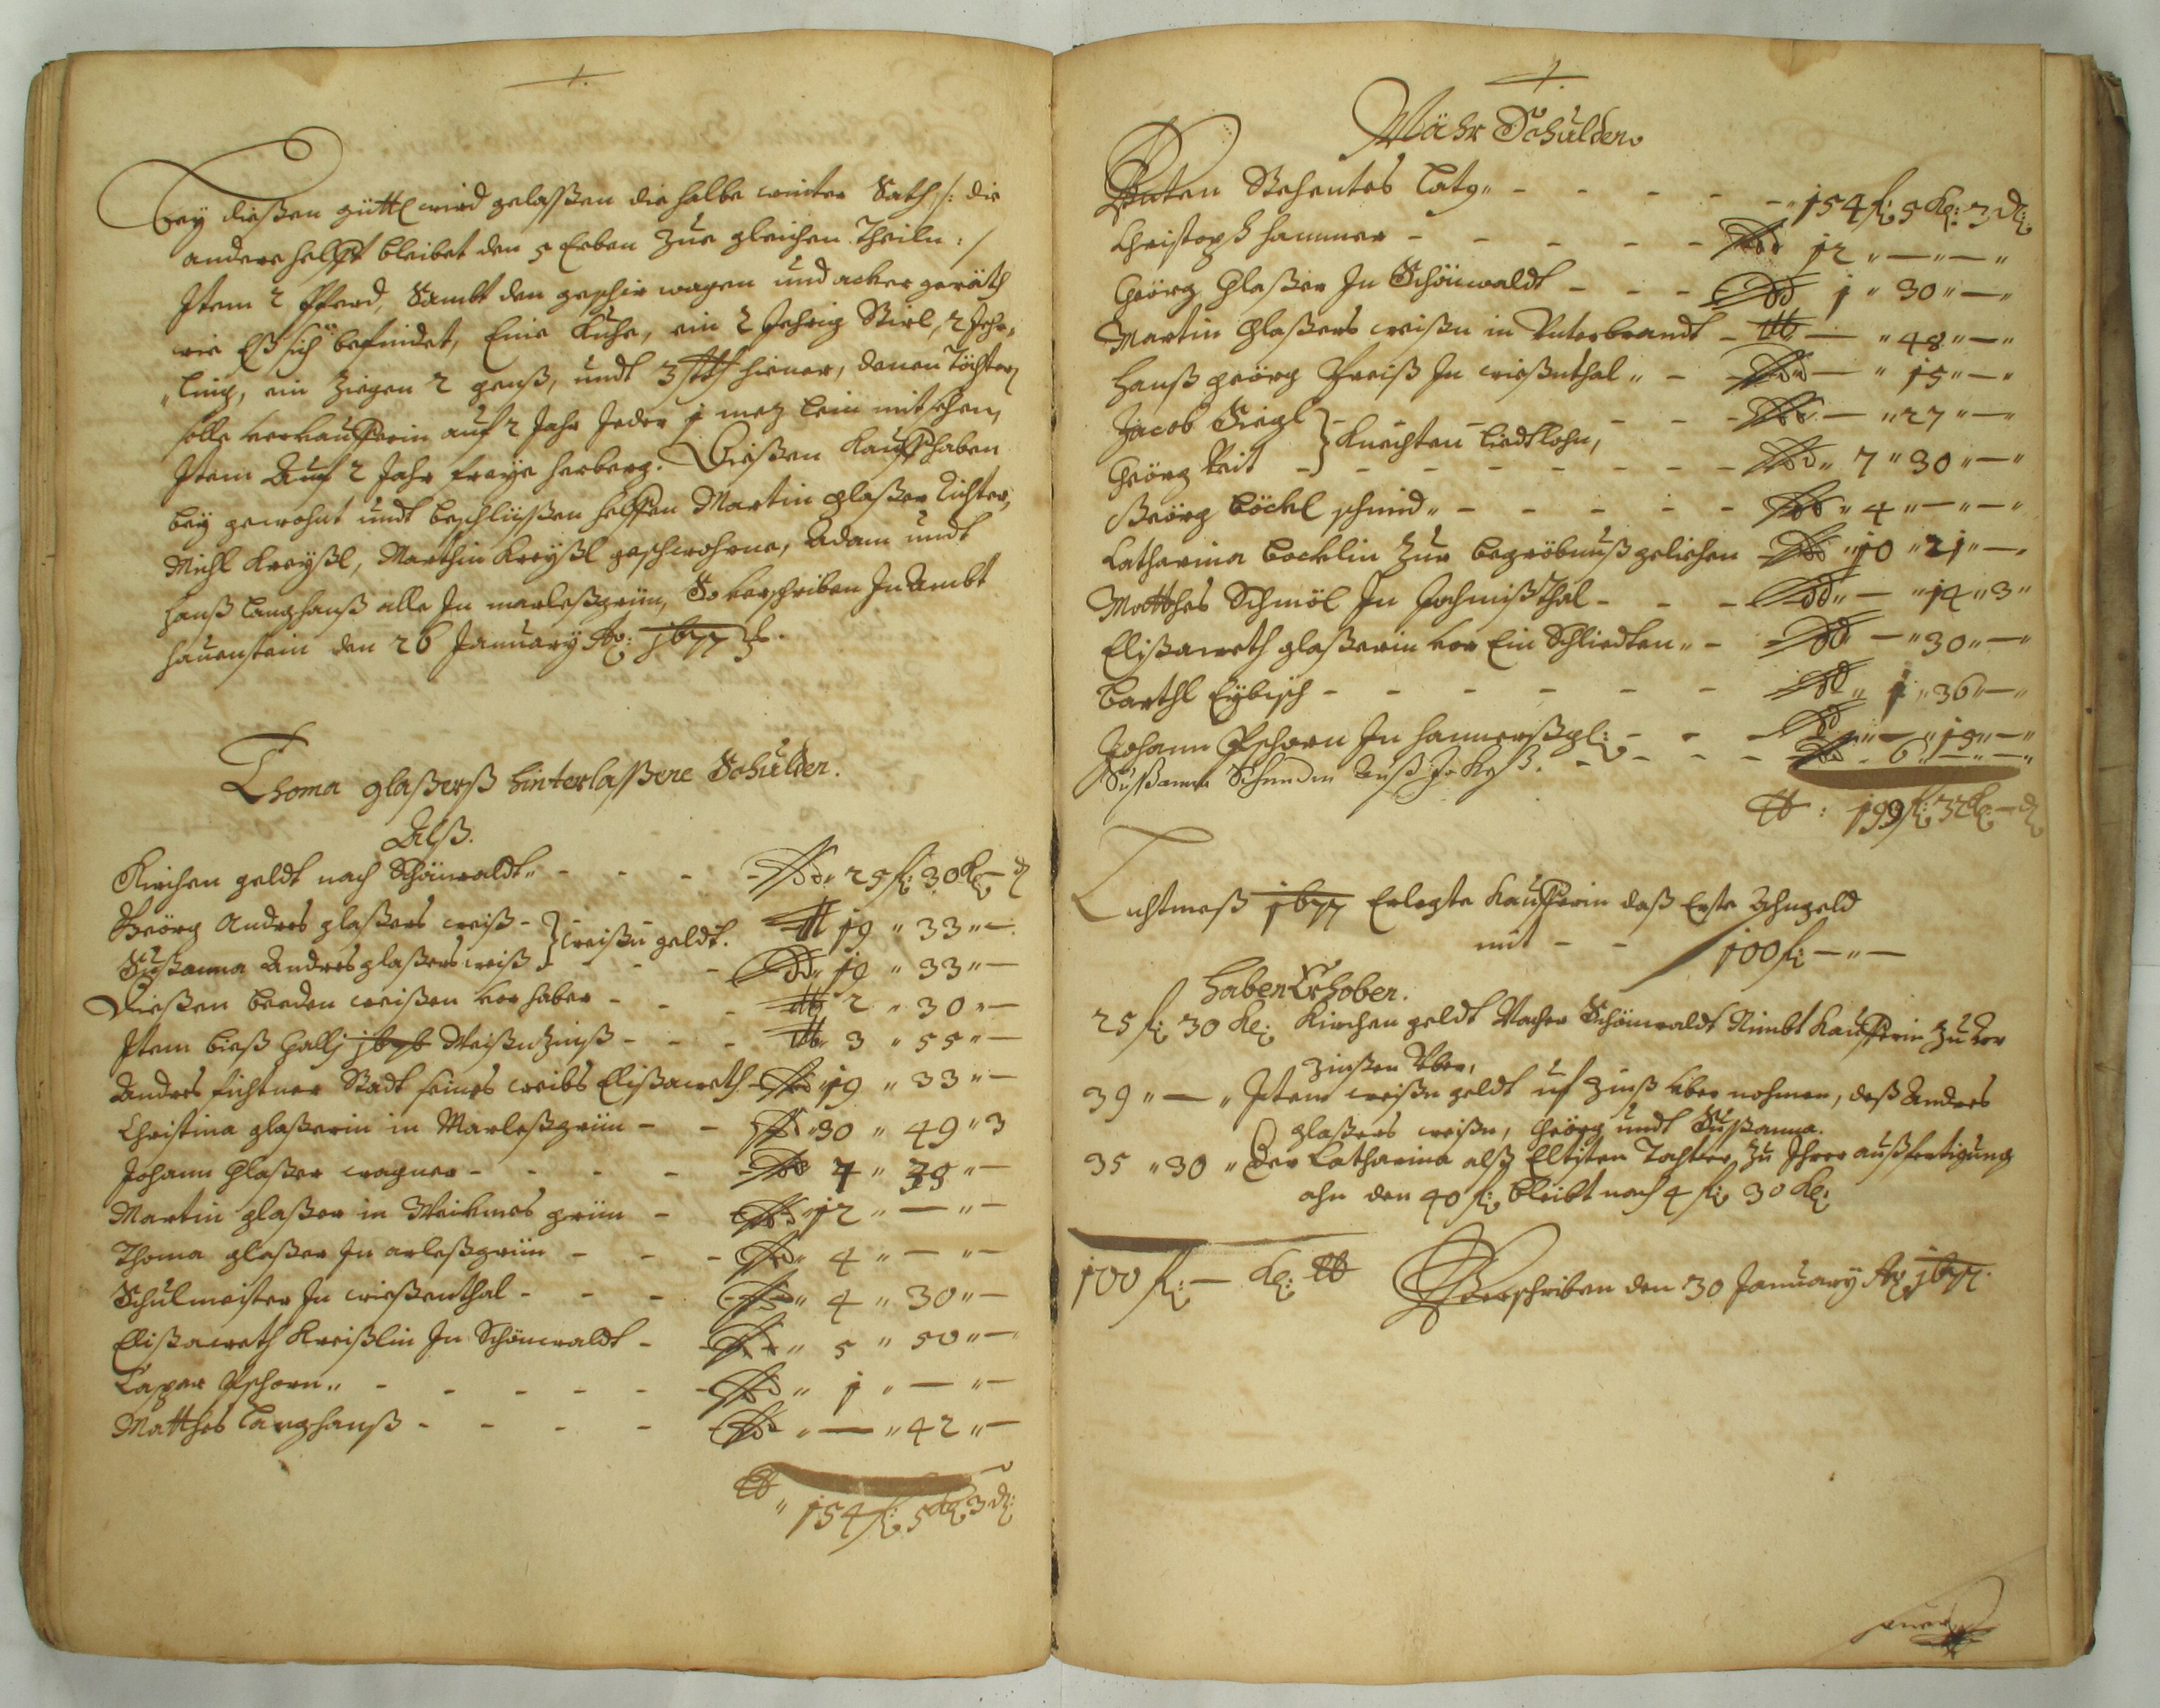 Bey dießen güttl wird gelaßen die halbe winter Sath /: die
andere helfft bleibet den 5 Erben zue gleichen Theiln :/
Item 2 Pferd, Sambt den geschir wagen und acker geräth
wie Eß sich befindet, Eine Kuhe, ein 2 Jehrig Stirl, 2 Jehr„
„ling, ein Ziegen 2 genß, undt 3 hiener, denen Töchtern
solle verkaufferin auf 2 Jahr Jeder 1 mez lein mit sehen,
Item Auf 2 Jahr freye herberg. Dießen Kauff haben
bey gewohnt undt beschlüßen helffen Martin glaßer Richter,
Michl Kreyßl, Marthin Kreyßl geschwohrne, Adam undt
Hanß Langhanß alle In marleßgrün, So verschriben In Ambt
hauenstein den 26 January Ao: 1677
Thoma glaßerß hinterlaßene Schulden.
Alß.
Kirchen geldt nach Schönwaldt„ - - - 25 fl: 30 Kr: — d
Geörg Andres glaßers weiß - } weißn geldt. 19 „ 33 „ —
Sußanna Andres glaßers weiß 19 „ 33 „ —
Dießen beeden weißen vor haber - - - 2 „ 30 „ —
Item bieß Gallj 1676 Weißn Zinß - - - 3 „ 55 „ —
Andres fichtner Stadt seines weibs Elisaweth - 19 „ 33 „ —
Christina glaßerin in Marleßgrün - - 30 „ 49 „ 3
Johann Glaßer wagner - - - - 4 „ 39 „ —
Martin glaßer in Weikmes grün - 12 „ — „ —
Thoma glaßer In arleßgrün - - - 4 „ — „ —
Schulmeister In wießenthal - - - 4 „ 30 „ —
Elisaweth Kreißlin In Schönwaldt - 5 „ 50 „ —
Caspar Pschorn„ - - - - - 1 „ — „ —
Matthes Langhanß - - - - „ — „ 42 „ —
„ 154 fl: 5 Kr: 3 d:
Mähr Schulden
Stehentes Latg„ - - - - - 154 fl: 5 Kr: 3 d:
Christoph hammer - - - - - 12 „ — „ — „
Geörg Glaßer In Schönwaldt - - - 1 „ 30 „ — „
Martin Glaßers weißn in Unterbrandt - — „ 48 „ — „
Hanß geörg Preiß In wießnthal „ - — „ 15 „ — „
Jacob Siegl } Knechten Liedtlohn, - - - — „ 27 „ — „
Geörg Veit - - - - - - 7 „ 30 „ — „
Geörg Böckl schmid „ - - - - - 4 „ — „ — „
Catharina bocklin Zur begröbnuß geliehen 10 „ 21 „ — „
Matthes Schmöl In Jochmißthal - - - „ — „ 14 „ 3 „
Elisaweth glaßerin vor Ein Schliedten „ - — „ 30 „ — „
Barthl Eybisch - - - - - - „ 1 „ 36 „ — „
Johann Pschorn In hammerßgl: - - - — „ 15 „ — „
Sußanna Schmidin - - - - 6 „ — „ — „
: 199 fl: 32 Kr: — d
Lichtmeß 1677 Erlegte Kaufferin daß Erste Ahngeld
mit - - 100 fl: — „ —
Haben Erhoben.
25 fl: 30 Kr: Kirchen geldt Nacher Schönwaldt Nimbt Kaufferin zu Ver
Zinßen Vber,
39 „ — „ Item weißn geldt uf Zinß Vber nohmen, deß Andres
glaßers weißn, Geörg undt Sußanna.
35 „ 30 „ Der Catharina alß Eltisten Tochter, Zu Ihrer außfertigung
ahn den 40 fl: bleibt noch 4 fl: 30 Kr:
100 fl: — Kr: Verschriben den 30 January Ao 1677.